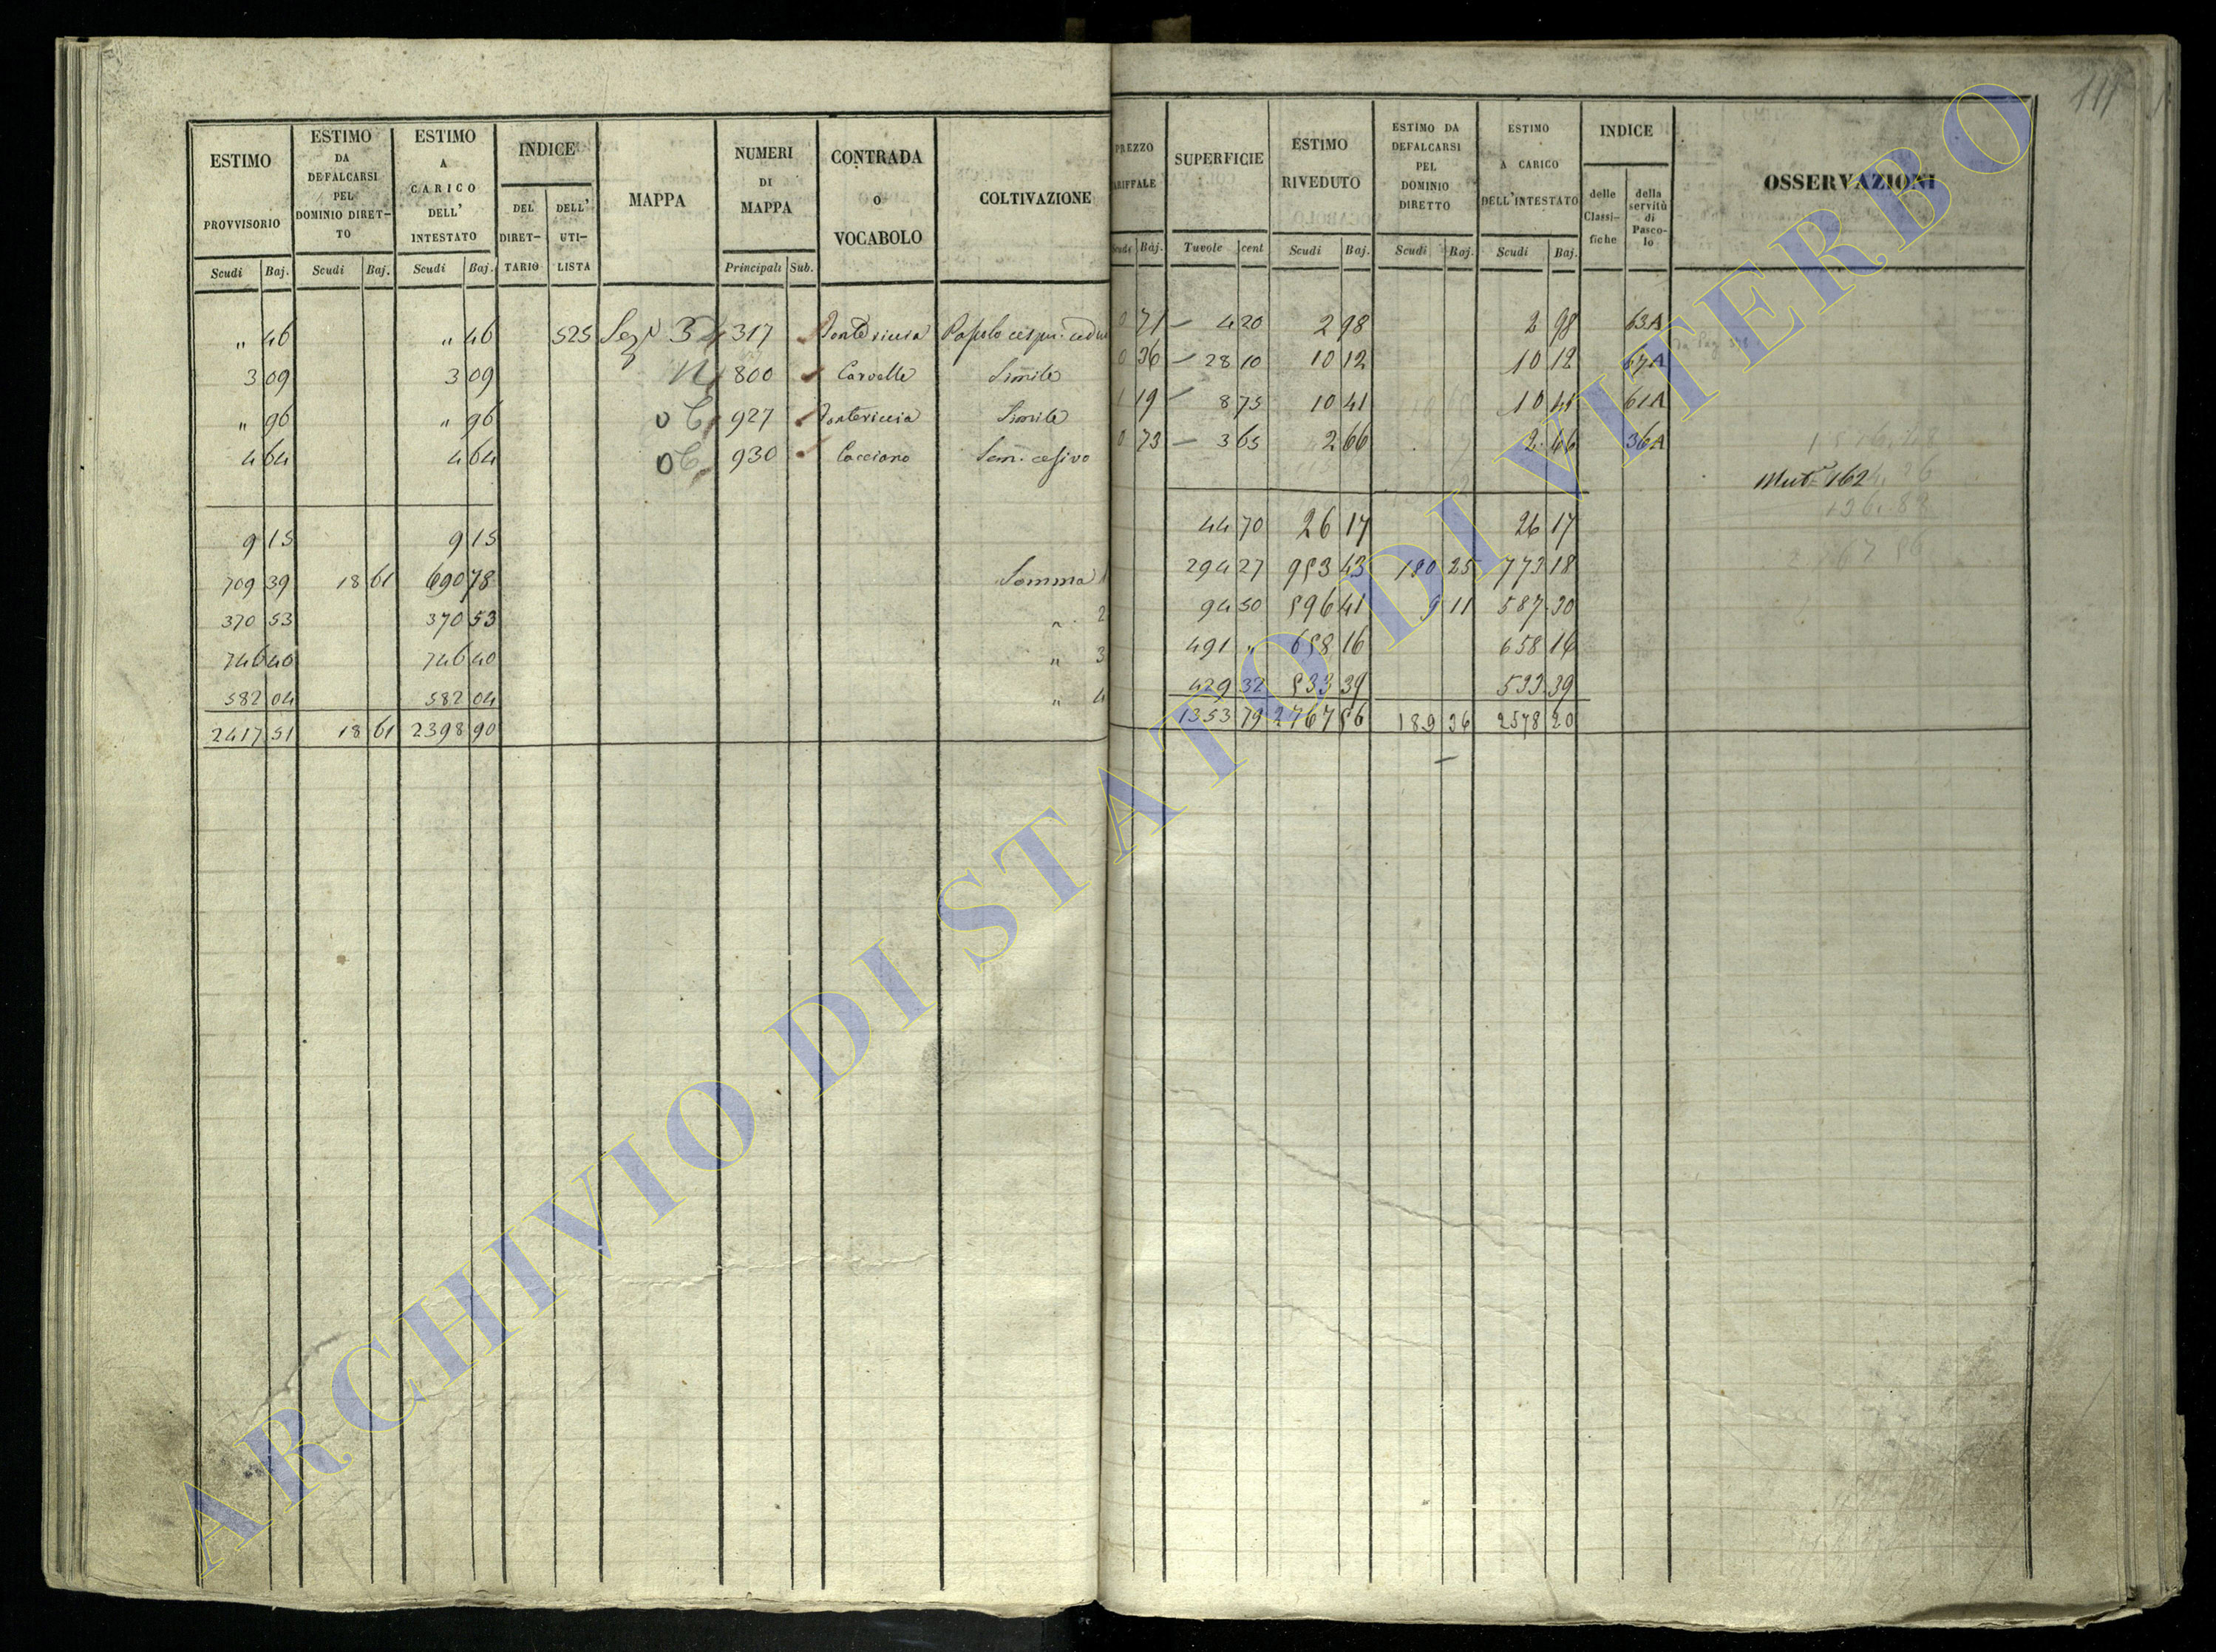 111
ESTIMO PROVVISORIO Scudi Baj.
ESTIMO DA DEFALCARSI PEL DOMINIO DIRETTO Scudi Baj.
ESTIMO A CARICO DELL' INTESTATO Scudi Baj.
INDICE DEL DIRETTARIO DELL' UTILISTA
MAPPA
NUMERI DI MAPPA Principali Sub.
CONTRADA O VOCABOLO
COLTIVAZIONE
PREZZO TARIFFALE Scudi Baj.
SUPERFICIE Tavole cent
ESTIMO RIVEDUTO Scudi Baj.
ESTIMO DA DEFALCARSI PEL DOMINIO DIRETTO Scudi Baj.
ESTIMO A CARICO DELL'INTESTATO Scudi Baj.
INDICE delle Classifiche della servitù di Pascolo
OSSERVAZIONI
" 46 " 46 525 Sez. 317 0 71 4 20 2 98 2 98 63A
3 09 3 09 800 Simile 0 36 28 10 10 12 10 12 67A
" 96 " 96 927 Simile 1 19 8 75 10 41 10 41 61A
4 64 4 64 930 Cacciano Sem. 0 73 3 65 2 66 2 66 36A
Mut. 162
9 15 9 15 44 70 26 17 26 17
709 39 18 61 690 78 Somma 1 294 27 953 43 180 25 773 18
370 53 370 53 " 2 94 50 596 41 9 11 587 30
746 40 746 40 " 3 491 " 658 16 658 16
582 04 582 04 " 4 429 32 533 39 533 39
2417 51 18 61 2398 90 1353 79 2767 56 189 36 2578 20
ARCHIVIO DI STATO DI VITERBO